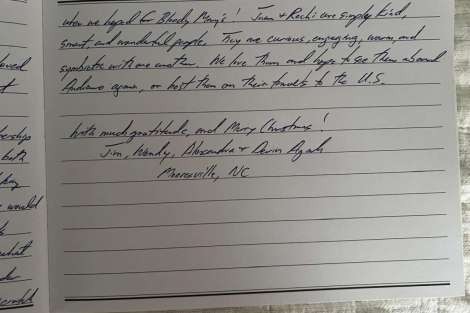 when we hoped for Bloody Mary's! Juan & Rochi are simply kind,
smart and wonderful people. They are curious, engaging, warm, and
symbiotic with one another. We love them and hope to see them aboard
Andiamo again, or host them on their travels to the U.S.
With much gratitude, and Merry Christmas!
Jim, Wendy, Alexandra & Devin
Mooresville, NC
would
what